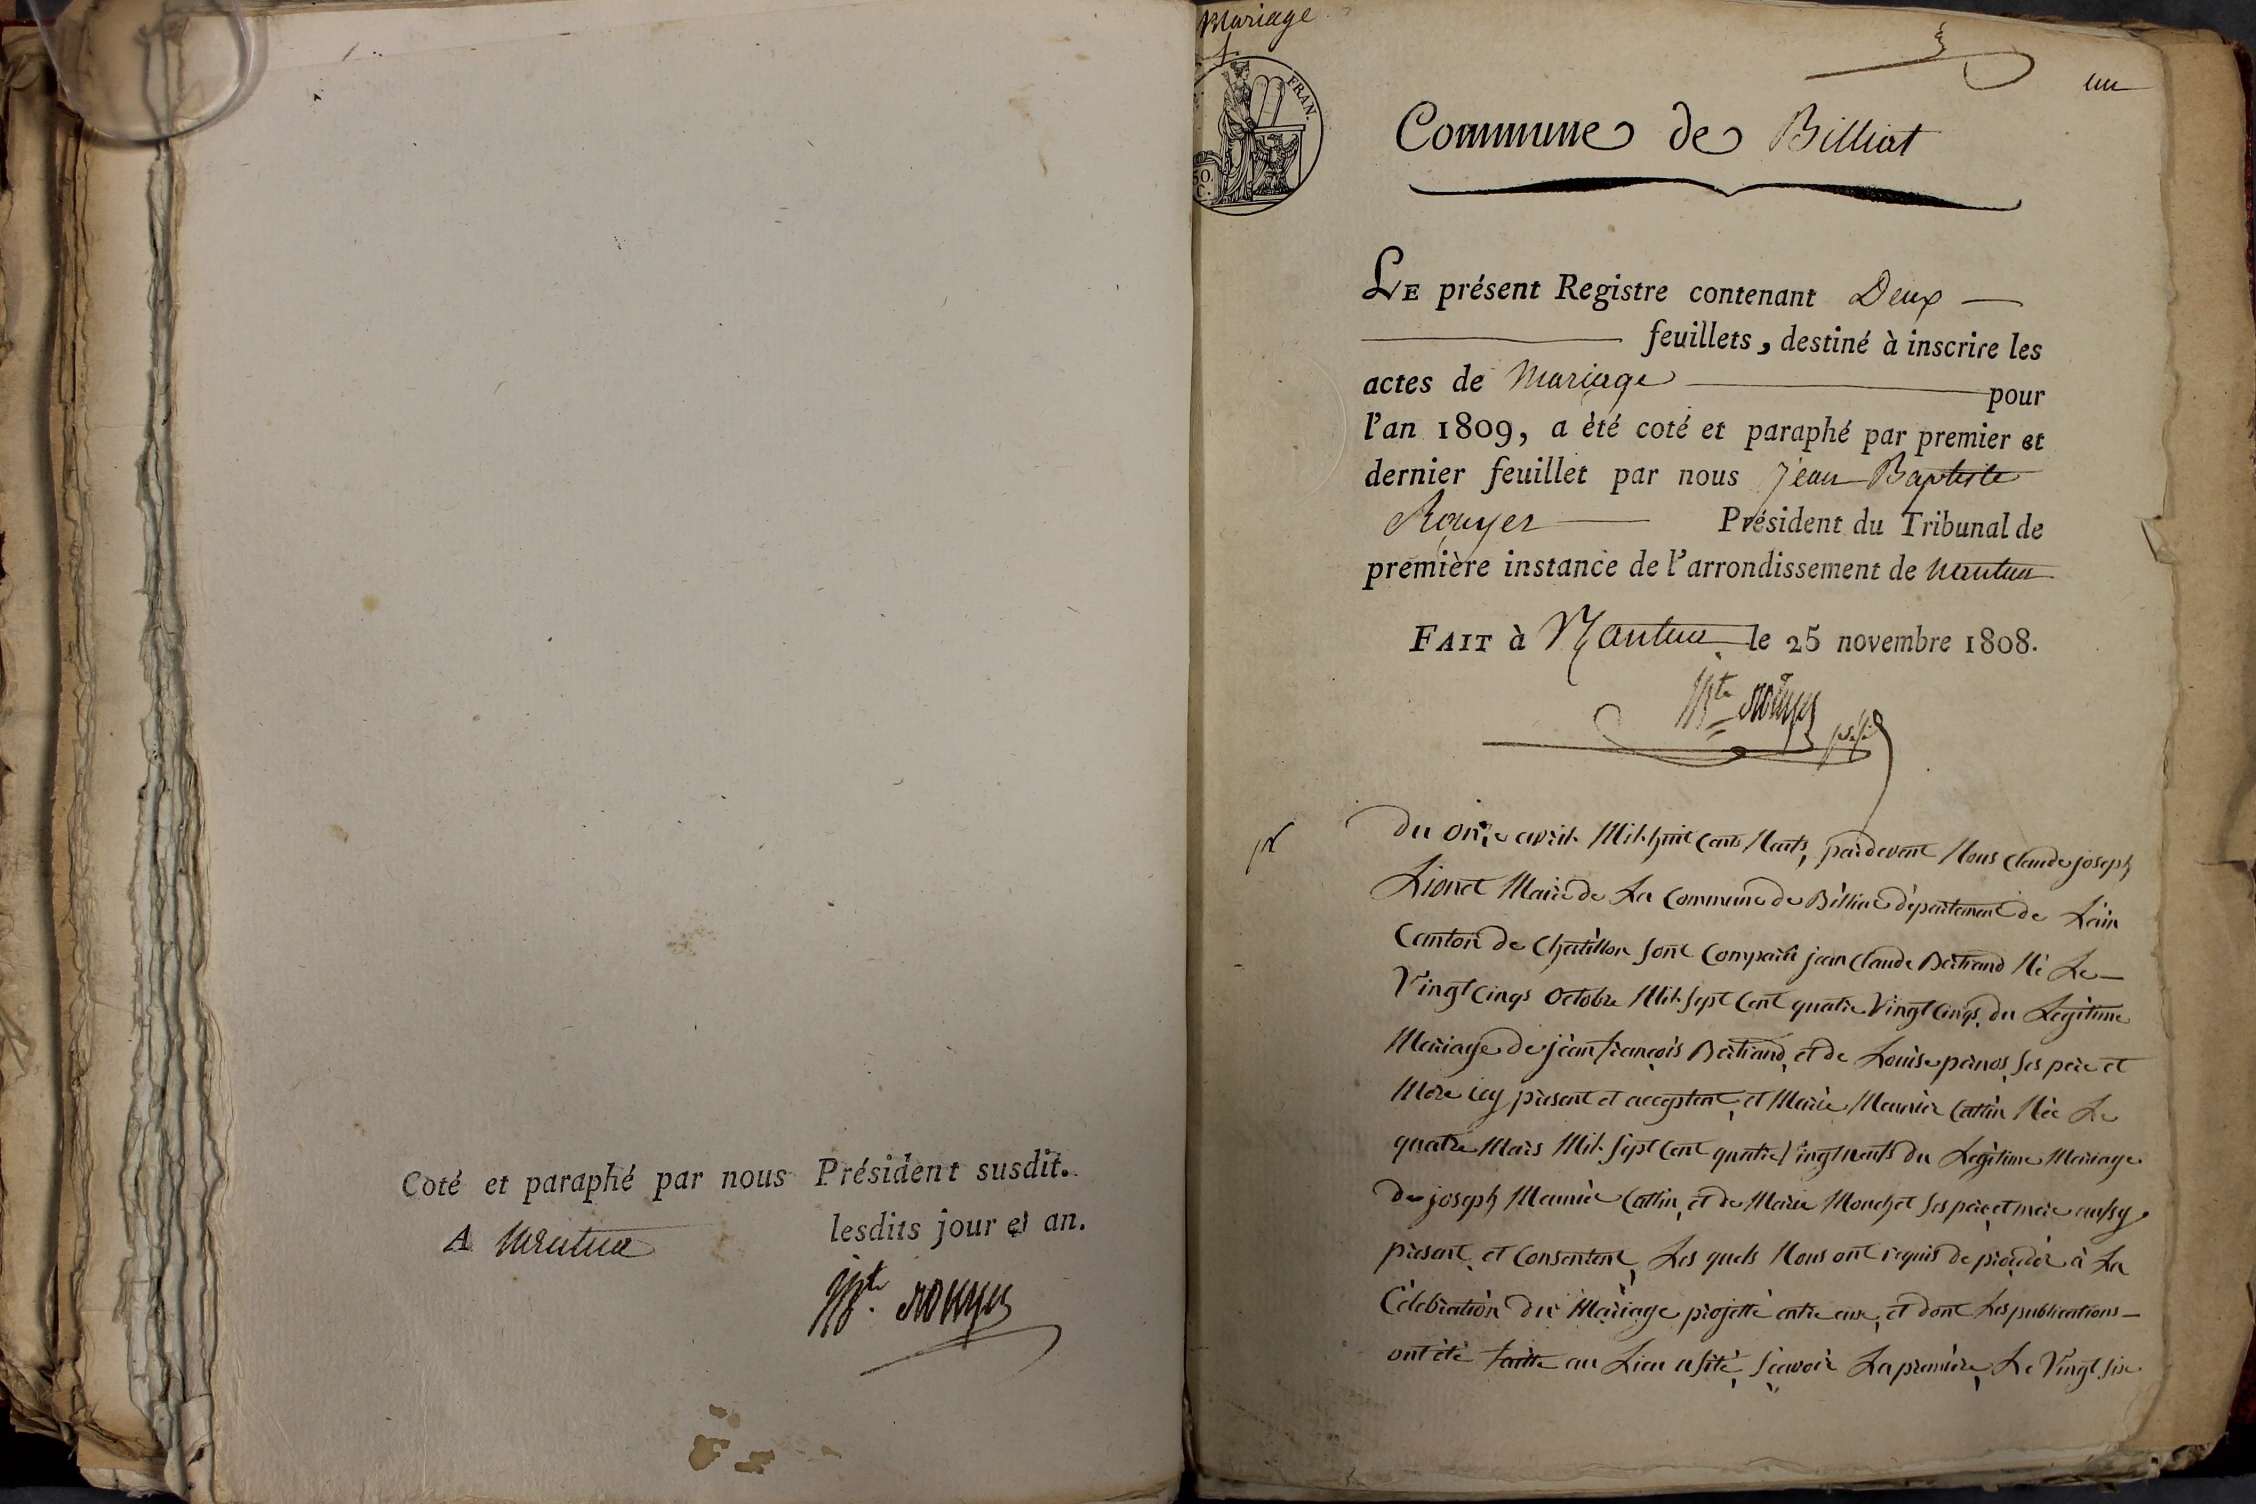 Coté et paraphé par nous Président susdit.
A Nantua lesdits jour et an.
Bte. Rouyer
Mariage
FRAN.
50.
C.
un
Commune de Billiat
LE présent Registre contenant Deux
feuillets, destiné à inscrire les
actes de Mariage pour
l'an 1809, a été coté et paraphé par premier et
dernier feuillet par nous Jean Baptiste
Rouyer Président du Tribunal de
première instance de l'arrondissement de Nantua
FAIT à Nantua le 25 novembre 1808.
Bte Rouyer
Du onze avril Mil huit Cents Neufs, pardevant Nous Claude joseph
Lionet Maire de La Commune de Billiat département de Lain
Canton de Chatillon sont Comparu jean Claude Bertrand Né Le
Vingt Cinqs Octobre Mil Sept Cent quatre Vingt Cinqs, du Legitime
Mariage de jean françois Bertrand, et de Louise pernos, ses pere et
Mere icy present et acceptent, et Marie Meunier Cattin Née Le
quatre Mars Mil Sept Cent quatre Vingt neufs du Legitime Mariage
de joseph Meunier Cattin, et de Marie Monchet ses pere et mere aussy
present, et Consentent, Les quels Nous ont requis de proceder à La
Célébration du Mariage projetté entre eux, et dont Les publications
ont été faitte au Lieu usité, Scavoir La premiere, Le Vingt six